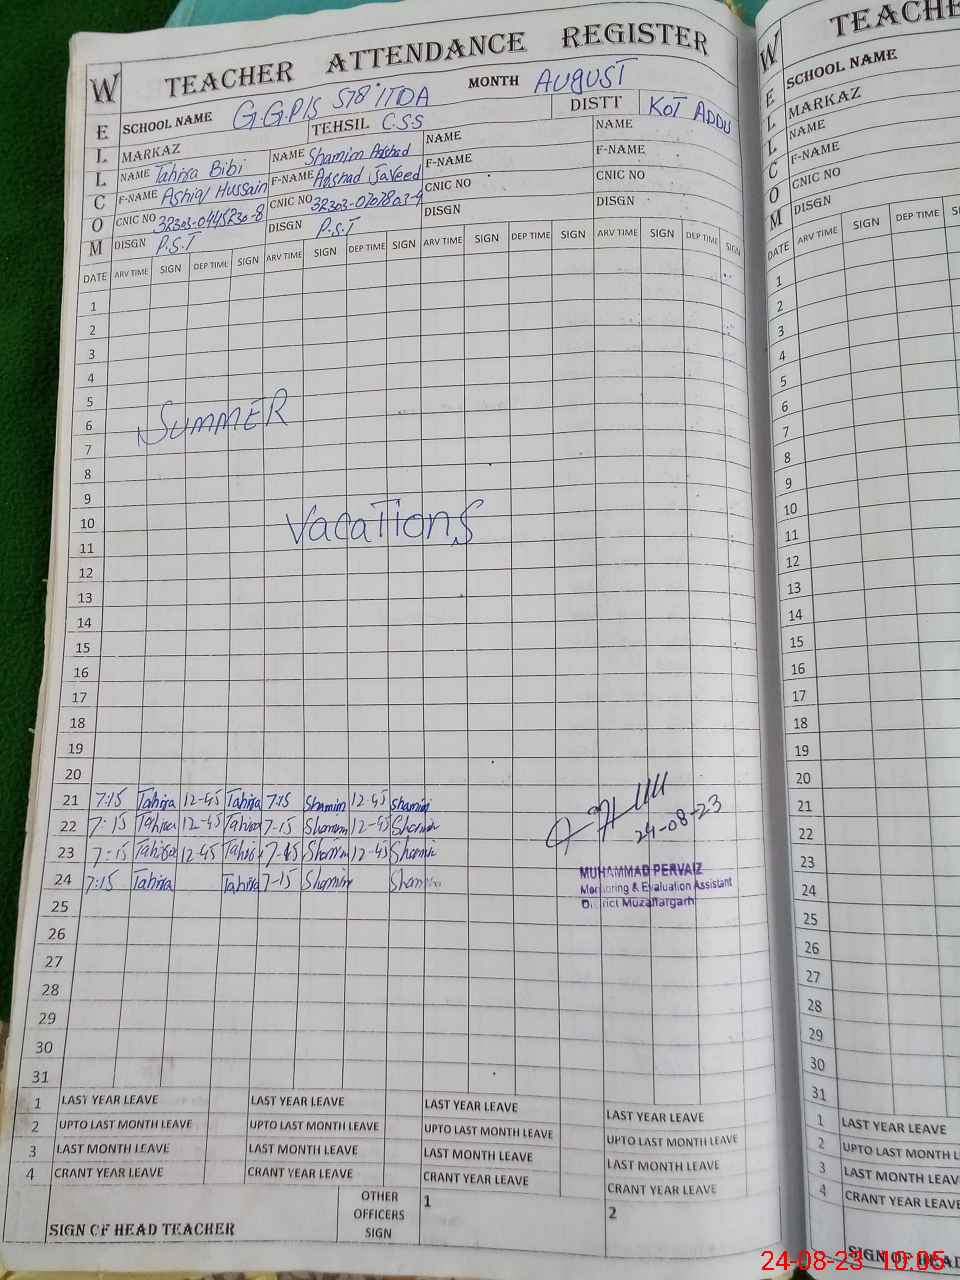 W TEACHER ATTENDANCE REGISTER
E SCHOOL NAME G.G.P/S 578'/TDA MONTH AUGUST
L MARKAZ TEHSIL C.S.S DISTT KOT ADDU
L NAME Tahira Bibi NAME Shamim Arshad NAME NAME
C F-NAME Ashiq Hussain F-NAME Arshad Javeed F-NAME F-NAME
O CNIC NO 32303-0445230-8 CNIC NO 32303-0707803-4 CNIC NO CNIC NO
M DISGN P.S.T DISGN P.S.T DISGN DISGN
DATE ARV TIME SIGN DEP TIME SIGN ARV TIME SIGN DEP TIME SIGN ARV TIME SIGN DEP TIME SIGN ARV TIME SIGN DEP TIME SIGN
1
2
3
4
5
6 SUMMER
7
8
9
10 VacaTionS
11
12
13
14
15
16
17
18
19
20
21 7:15 Tahira 12-45 Tahira 7:15 Shamim 12-45 Shamim
22 7:15 Tahira 12-45 Tahira 7-15 Shamim 12-45 Shamim
23 7:15 Tahira 12-45 Tahira 7-15 Shamim 12-45 Shamim
24 7:15 Tahira Tahira 7-15 Shamim Shamim
24-08-23
MUHAMMAD PERVAIZ
Monitoring & Evaluation Assistant
District Muzaffargarh
25
26
27
28
29
30
31
1 LAST YEAR LEAVE LAST YEAR LEAVE LAST YEAR LEAVE LAST YEAR LEAVE
2 UPTO LAST MONTH LEAVE UPTO LAST MONTH LEAVE UPTO LAST MONTH LEAVE UPTO LAST MONTH LEAVE
3 LAST MONTH LEAVE LAST MONTH LEAVE LAST MONTH LEAVE LAST MONTH LEAVE
4 CRANT YEAR LEAVE CRANT YEAR LEAVE CRANT YEAR LEAVE CRANT YEAR LEAVE
SIGN OF HEAD TEACHER OTHER OFFICERS SIGN 1 2
W TEACHE
E SCHOOL NAME
L MARKAZ
L NAME
C F-NAME
O CNIC NO
M DISGN
DATE ARV TIME SIGN DEP TIME
1
2
3
4
5
6
7
8
9
10
11
12
13
14
15
16
17
18
19
20
21
22
23
24
25
26
27
28
29
30
31
1 LAST YEAR LEAVE
2 UPTO LAST MONTH L
3 LAST MONTH LEAV
4 CRANT YEAR LEAVE
SIGN OF HEAD
24-08-23 10:05